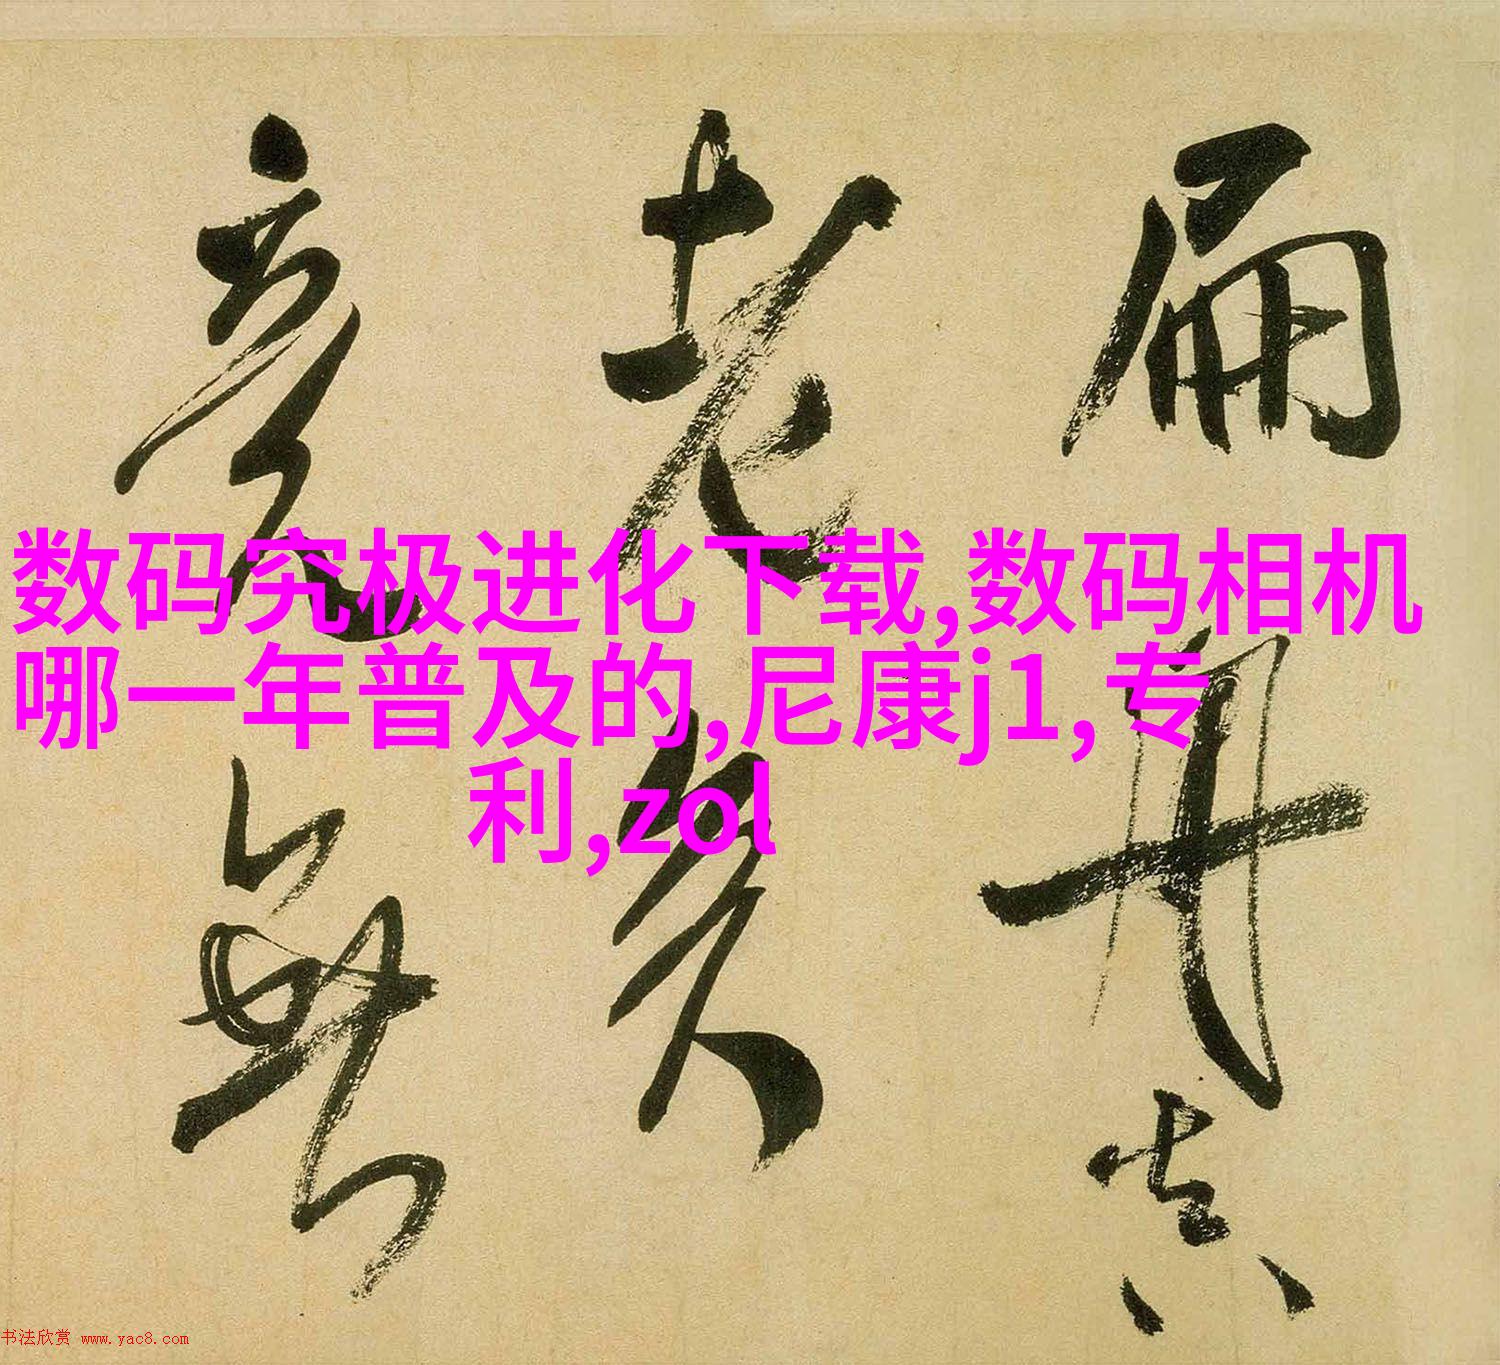 扁舟真
老矣
竟無
数码究极进化下载,数码相机
哪一年普及的,尼康j1,专
利,zol
书法欣赏 www.yac8.com